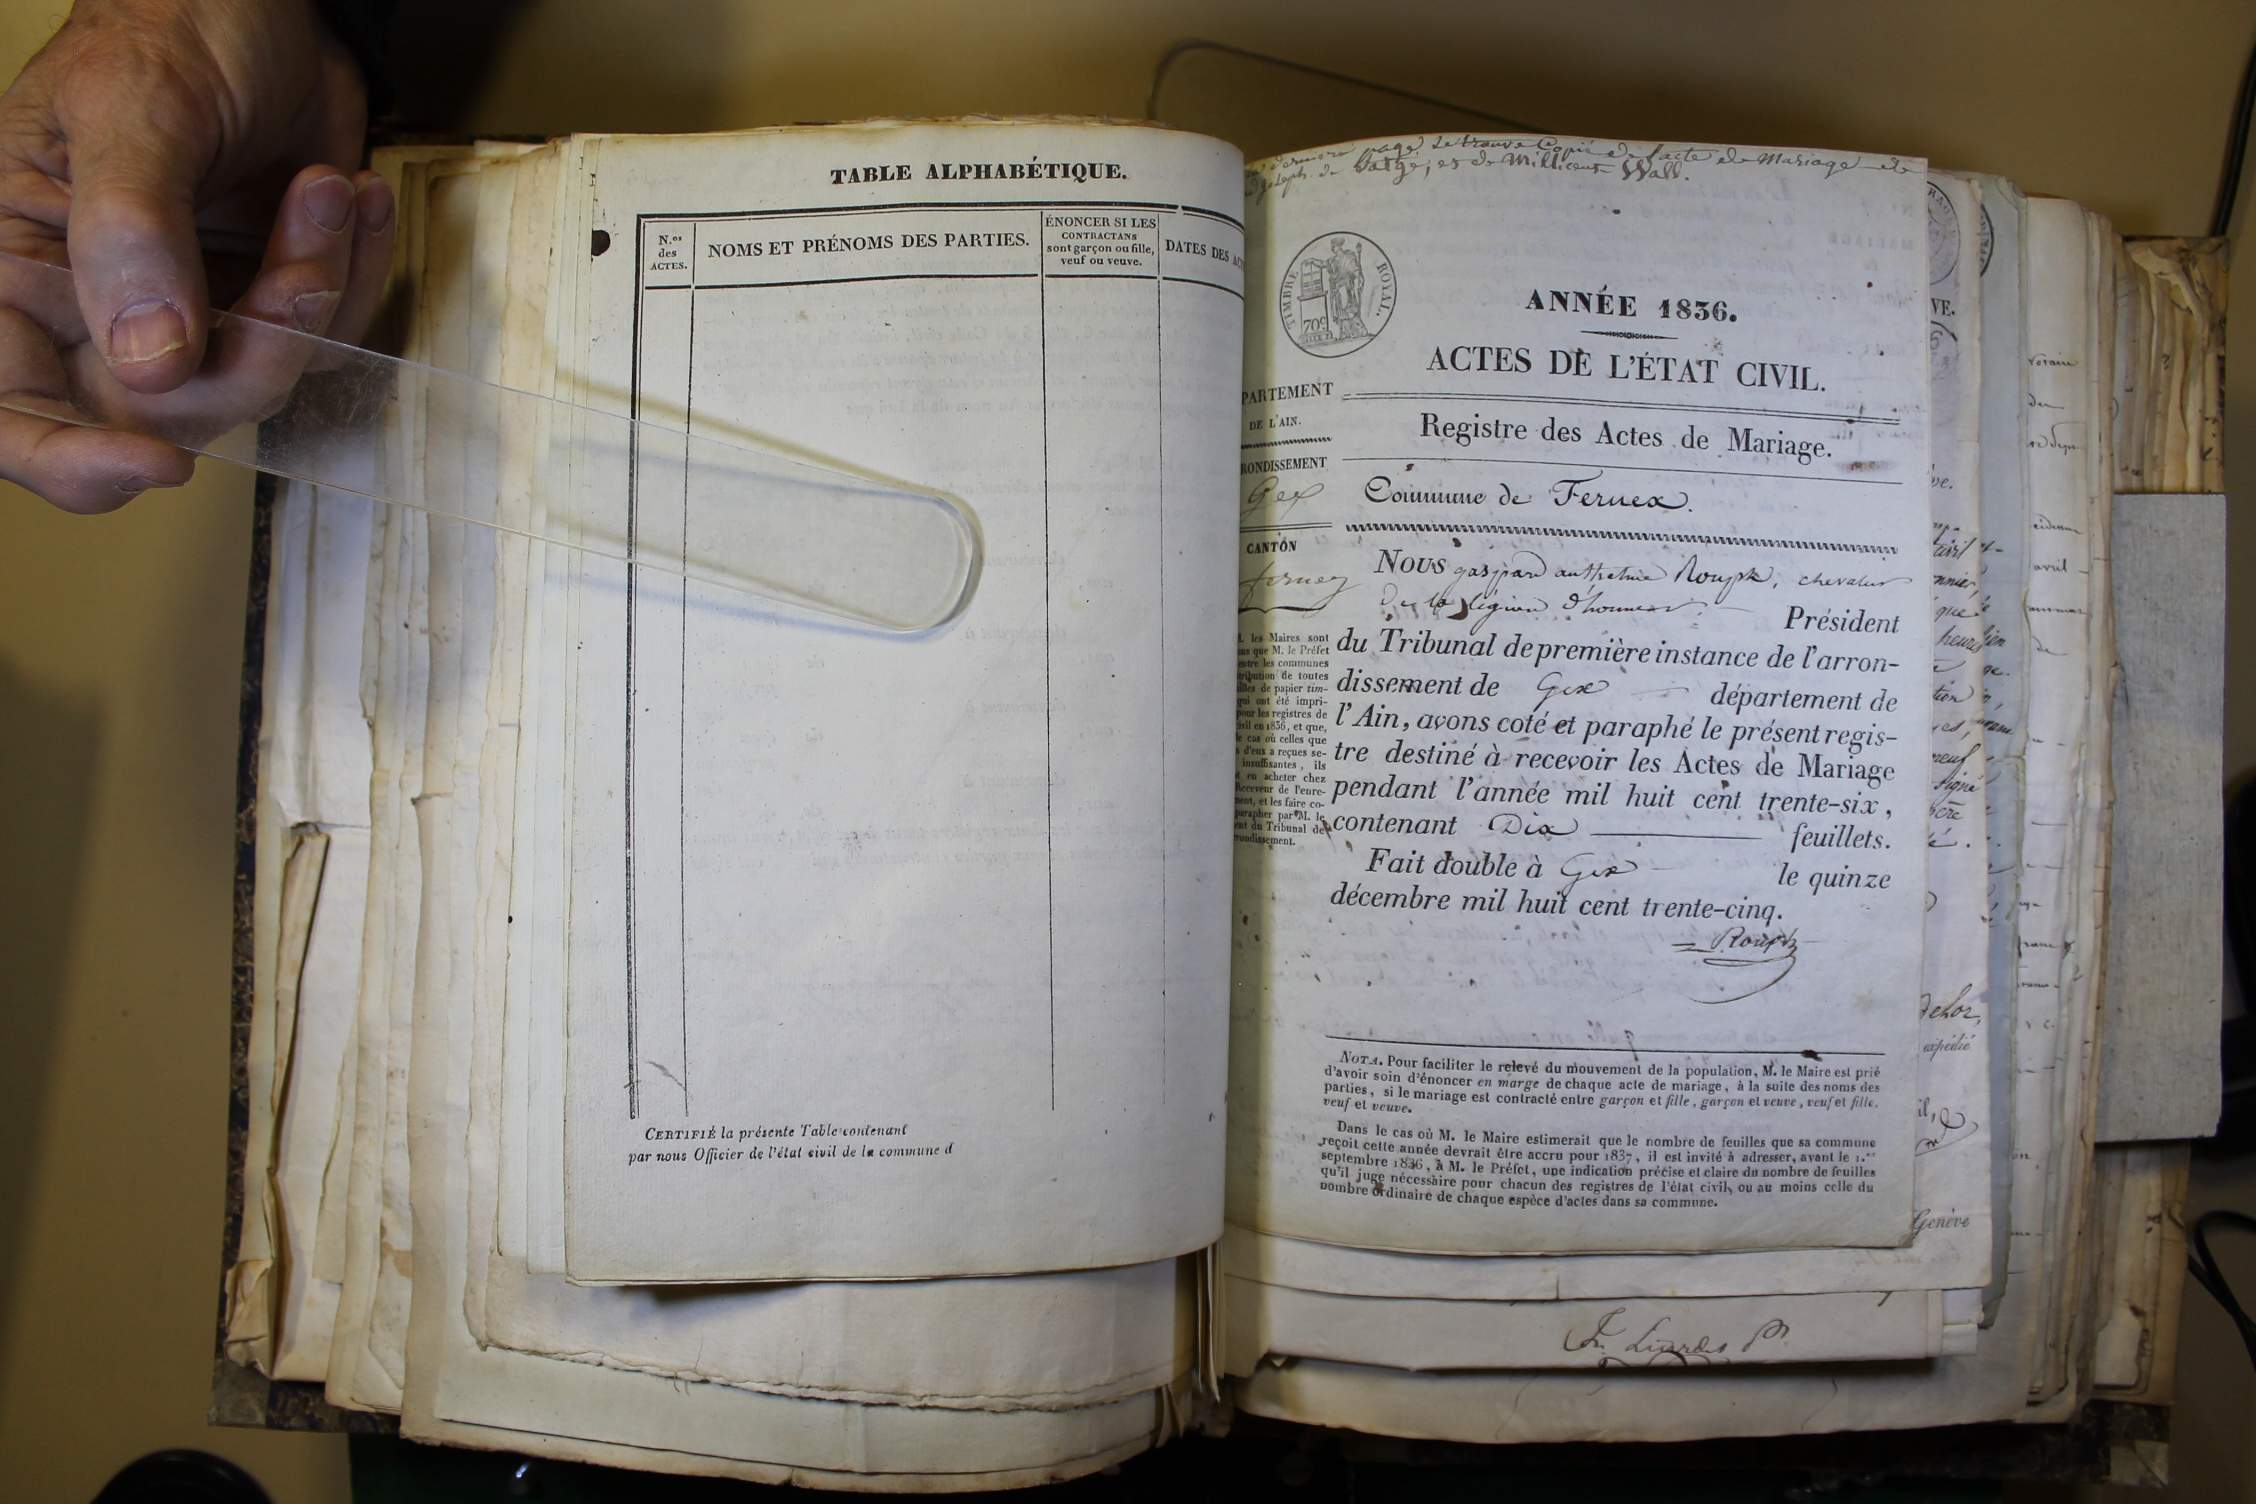 TABLE ALPHABÉTIQUE.
N.os des ACTES.
NOMS ET PRÉNOMS DES PARTIES.
ÉNONCER SI LES
CONTRACTANS
sont garçon ou fille,
veuf ou veuve.
DATES DES
CERTIFIÉ la présente Table contenant
par nous Officier de l'état civil de la commune d
page se trouve Copie de l'acte de Mariage de
Joseph de Satgé, et de Millicent Wall.
TIMBRE ROYAL.
70c
ANNÉE 1836.
ACTES DE L'ÉTAT CIVIL.
PARTEMENT
DE L'AIN.
RONDISSEMENT
Gex
CANTON
ferney
M. les Maires sont
que M. le Préfet
les communes
de toutes
de papier tim-
qui ont été impri-
pour les registres de
civil en 1836, et que,
le cas où celles que
d'eux a reçues se-
insuffisantes, ils
en acheter chez
Receveur de l'enre-
et les faire co-
parapher par M. le
du Tribunal de
Registre des Actes de Mariage.
Commune de Fernex.
NOUS gaspard anthelme Roupk, chevalier
De la légion d'honneur Président
du Tribunal de première instance de l'arron-
dissement de Gex département de
l'Ain, avons coté et paraphé le présent regis-
tre destiné à recevoir les Actes de Mariage
pendant l'année mil huit cent trente-six,
contenant Dix feuillets.
Fait double à Gex le quinze
décembre mil huit cent trente-cinq.
NOTA. Pour faciliter le relevé du mouvement de la population, M. le Maire est prié
d'avoir soin d'énoncer en marge de chaque acte de mariage, à la suite des noms des
parties, si le mariage est contracté entre garçon et fille, garçon et veuve, veuf et fille,
veuf et veuve.
Dans le cas où M. le Maire estimerait que le nombre de feuilles que sa commune
reçoit cette année devrait être accru pour 1837, il est invité à adresser, avant le 1.er
septembre 1836, à M. le Préfet, une indication précise et claire du nombre de feuilles
qu'il juge nécessaire pour chacun des registres de l'état civil, ou au moins celle du
nombre ordinaire de chaque espèce d'actes dans sa commune.
expédié
Genève